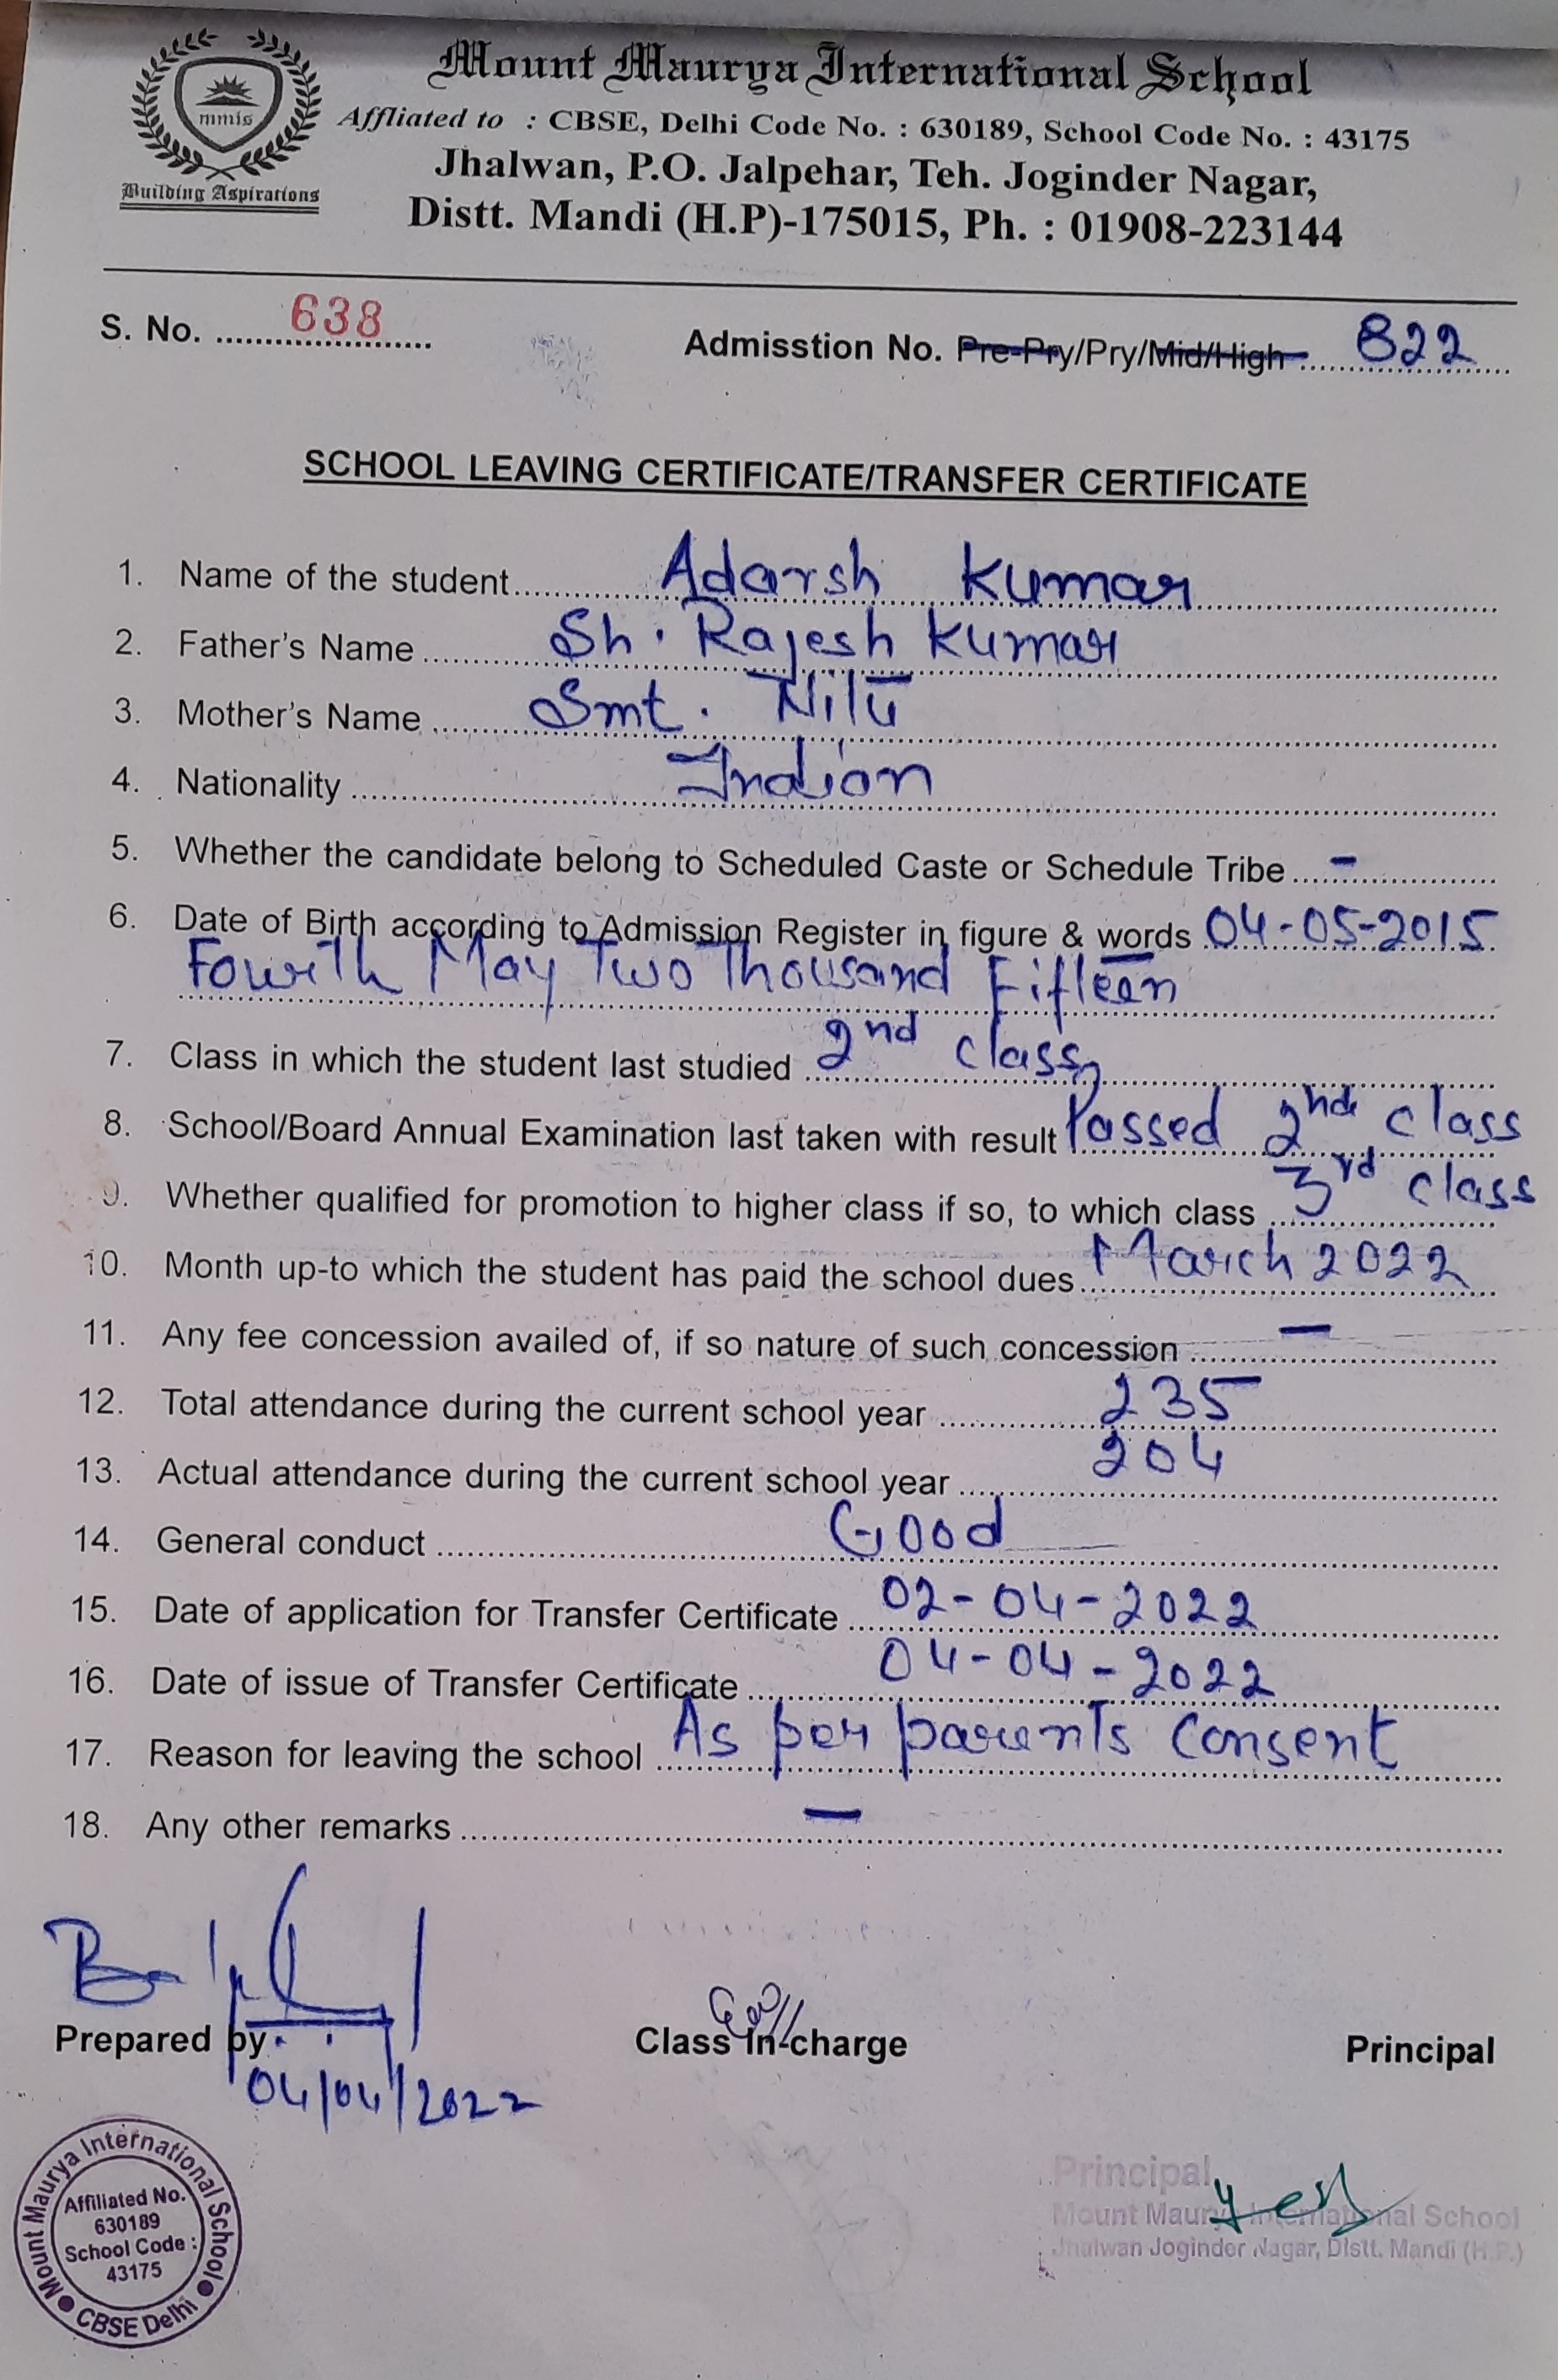 Mount Maurya International School
mmis
Building Aspirations
Affliated to : CBSE, Delhi Code No. : 630189, School Code No. : 43175
Jhalwan, P.O. Jalpehar, Teh. Joginder Nagar,
Distt. Mandi (H.P)-175015, Ph. : 01908-223144
S. No. 638
Admisstion No. Pre-Pry/Pry/Mid/High 822
SCHOOL LEAVING CERTIFICATE/TRANSFER CERTIFICATE
1. Name of the student Adarsh Kumar
2. Father's Name Sh. Rajesh Kumar
3. Mother's Name Smt. Nilu
4. Nationality Indian
5. Whether the candidate belong to Scheduled Caste or Schedule Tribe -
6. Date of Birth according to Admission Register in figure & words 04-05-2015
Fourth May Two Thousand Fifteen
7. Class in which the student last studied 2nd class
8. School/Board Annual Examination last taken with result Passed 2nd class
9. Whether qualified for promotion to higher class if so, to which class 3rd class
10. Month up-to which the student has paid the school dues March 2022
11. Any fee concession availed of, if so nature of such concession -
12. Total attendance during the current school year 235
13. Actual attendance during the current school year 204
14. General conduct Good
15. Date of application for Transfer Certificate 02-04-2022
16. Date of issue of Transfer Certificate 04-04-2022
17. Reason for leaving the school As per parents consent
18. Any other remarks -
Prepared by
Class In-charge
Principal
04/04/2022
Mount Maurya International School
Affiliated No.
630189
School Code :
43175
CBSE Delhi
Principal
Mount Maurya International School
Jhalwan Joginder Nagar, Distt. Mandi (H.P.)